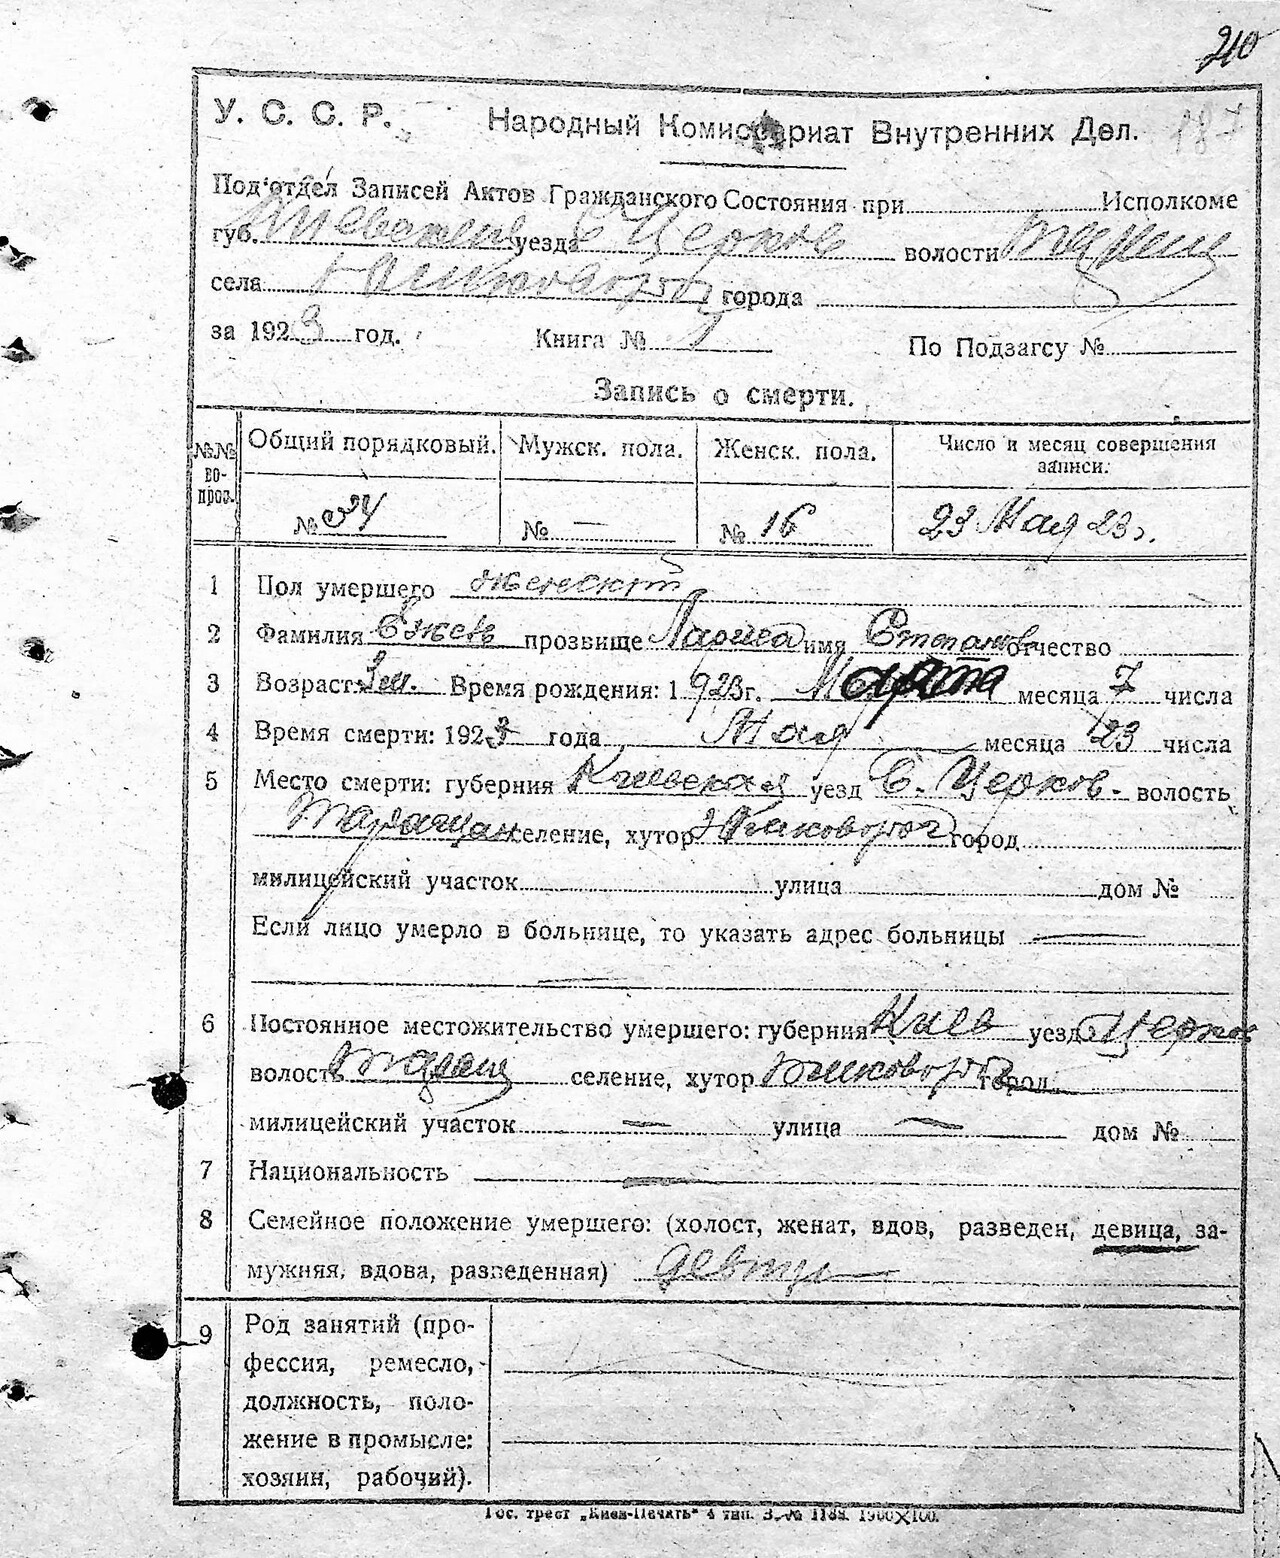 210
187
У. С. С. Р. Народный Комиссариат Внутренних Дел.
Под'отдел Записей Актов Гражданского Состояния при Исполкоме
губ. уезда Б Церков волости Таращ
села города
за 1923 год. Книга № По Подзагсу №
Запись о смерти.
№№ вопрос. Общий порядковый. Мужск. пола. Женск. пола. Число и месяц совершения записи.
№ 34 № — № 16 23 Мая 23г.
1 Пол умершего женский
2 Фамилия прозвище Лариса имя Степанов отчество
3 Возраст Время рождения: 1923г. Марта месяца 7 числа
4 Время смерти: 1923 года Мая месяца 23 числа
5 Место смерти: губерния Киевская уезд Б. Церков. волость
Таращан селение, хутор город
милицейский участок улица дом №
Если лицо умерло в больнице, то указать адрес больницы —
—
6 Постоянное местожительство умершего: губерния Киев уезд Церков
волость Таращ селение, хутор город
милицейский участок — улица — дом №
7 Национальность —
8 Семейное положение умершего: (холост, женат, вдов, разведен, девица, за-
мужняя, вдова, разведенная) девица
9 Род занятий (про-
фессия, ремесло,
должность, поло-
жение в промысле:
хозяин, рабочий).
Гос. трест „Киев-Печать" 4 тип. З. № 1188. 1900×100.